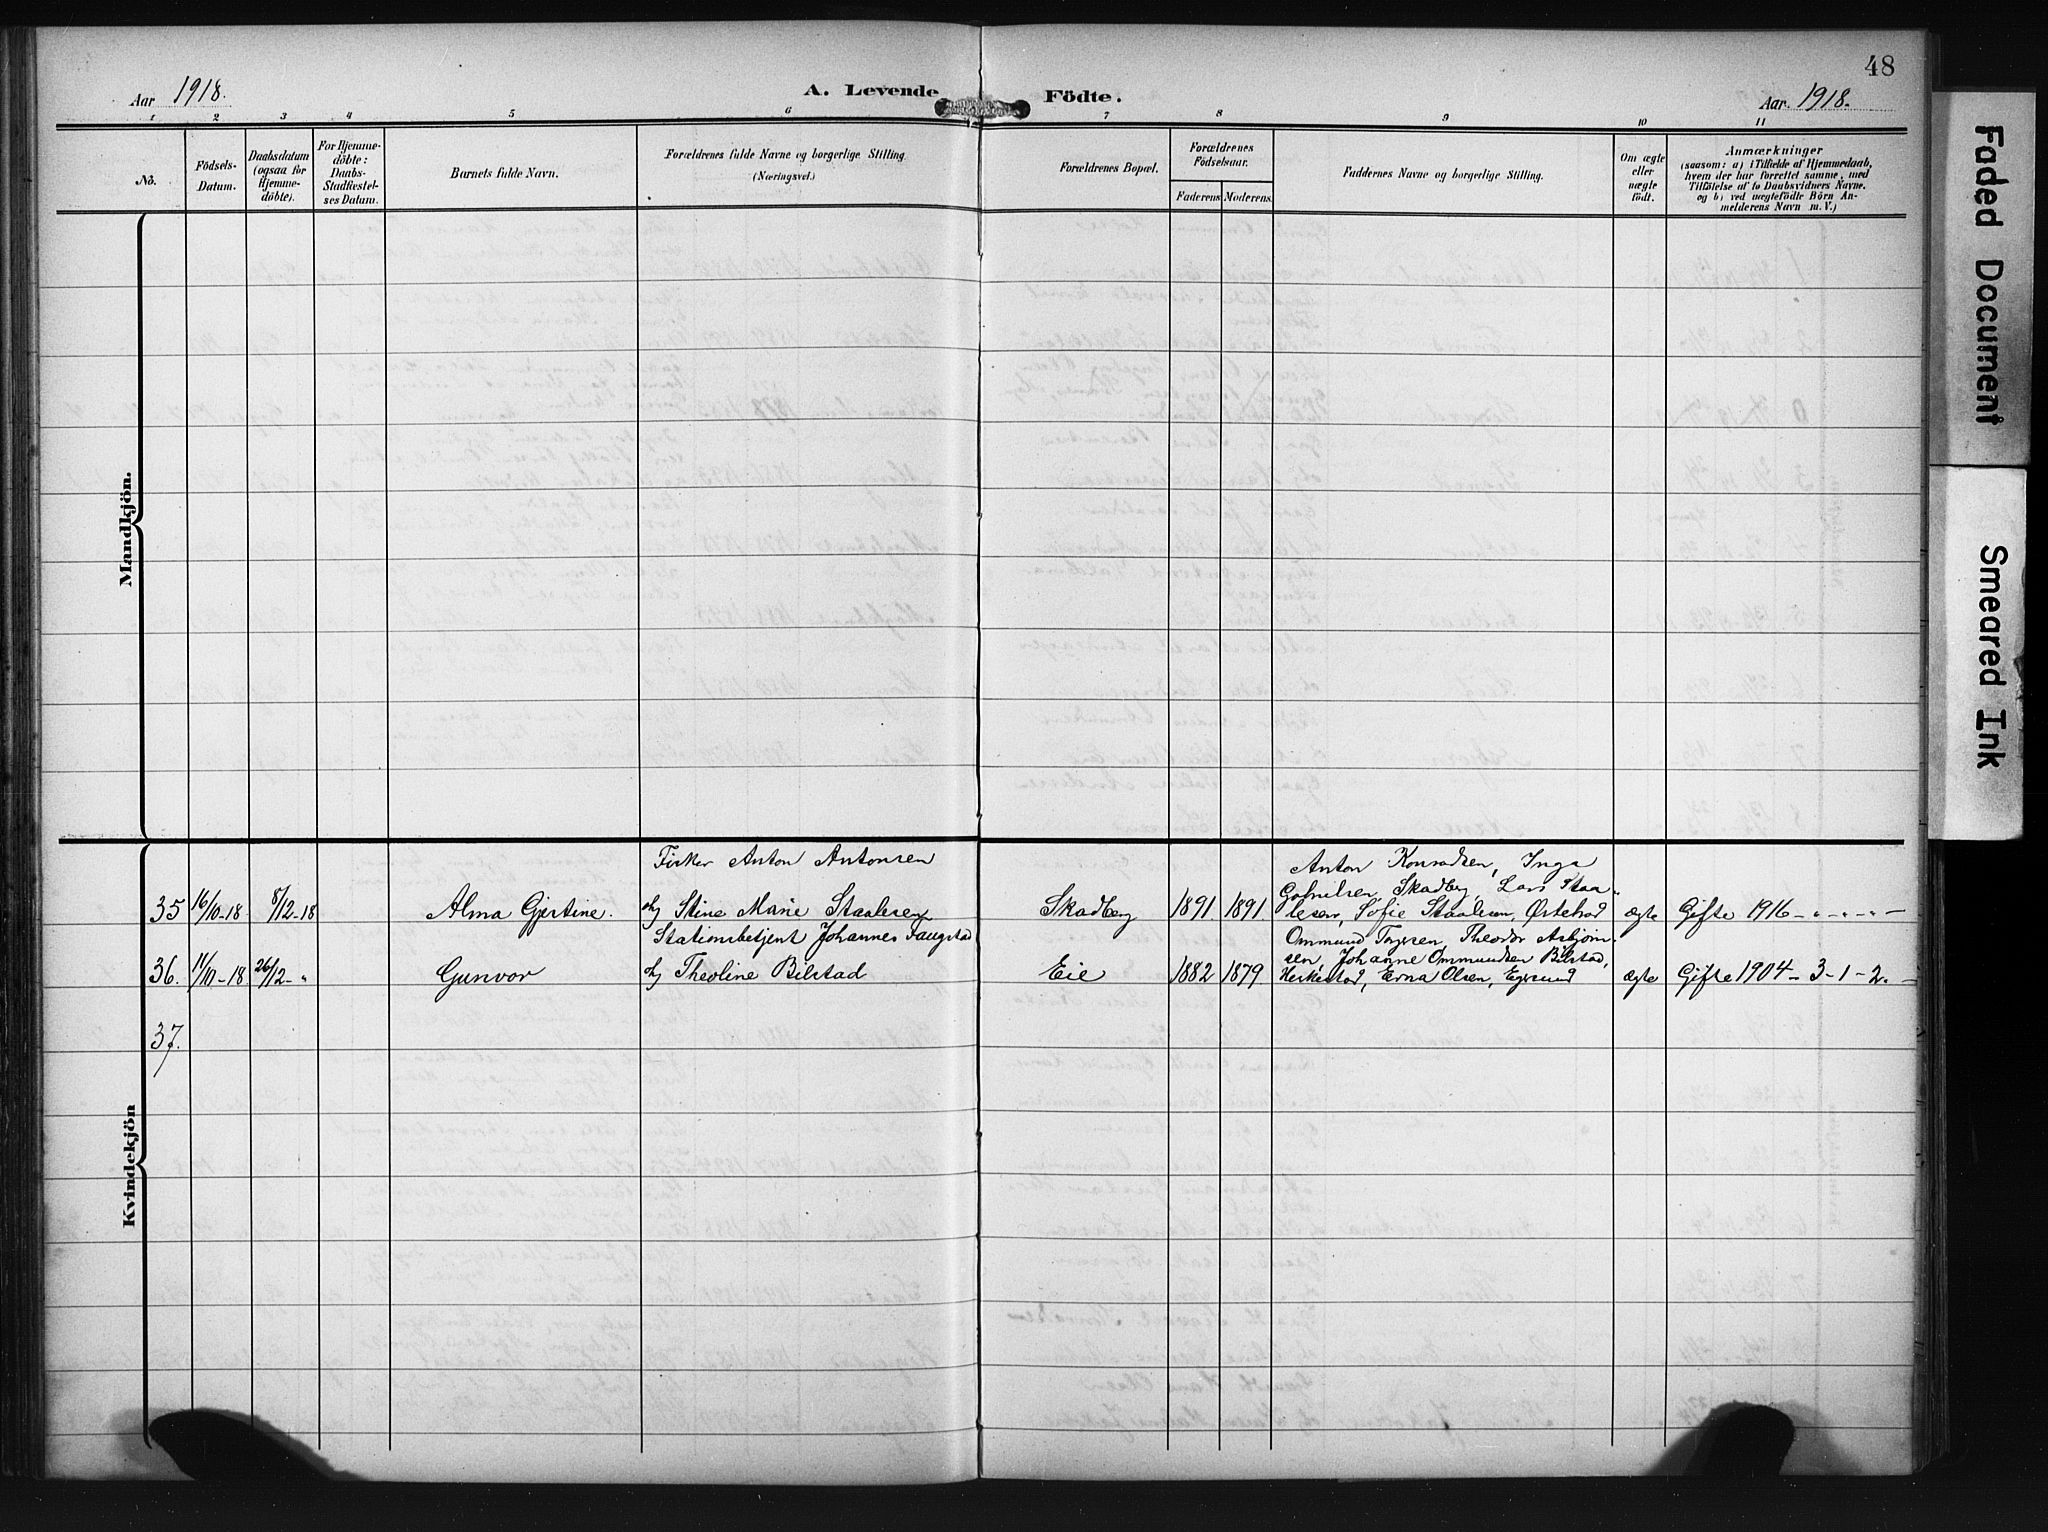 48
Aar 1918.
A. Levende Födte.
Aar 1918.
1 2 3 4 5 6 7 8 9 10 11
No.
Födsels-
Datum.
Daabsdatum
(ogsaa for
Hjemme-
döbte).
For Hjemme-
döbte:
Daabs-
Stadfæstel-
ses Datum.
Barnets fulde Navn.
Forældrenes fulde Navne og borgerlige Stilling.
(Næringsvei.)
Forældrenes Bopæl.
Forældrenes
Födselsaar.
Faderens
Moderens.
Faddernes Navne og borgerlige Stilling.
Om ægte
eller
uægte
födt.
Anmærkninger
(saasom: a) i Tilfælde af Hjemmedaab,
hvem der har forrettet samme, med
Tilföielse af to Daabsvidners Navne.
og b) ved uægtefödte Börn An-
melderens Navn m. V.)
Mandkjön.
Kvindekjön
Fisker Anton Antonsen
Anton Konradsen, Inga
Gabrielsen, Skadberg, Lars Staa-
35 16/10-18 8/12-18 Alma Gjertine. og Stine Marie Staalesen Skadberg 1891 1891 lesen, Sofie Staalesen, Østebrød ægte Gifte 1916 - „ - „ - „ -
Stationsbetjent Johannes Faugstad
Ommund Torgersen, Theodor Asbjørn-
sen, Johanne Ommundsen Bilstad,
36. 11/10-18 26/12-„ Gunvor og Theoline Bilstad Eie 1882 1879 Heskestad, Erna Olsen, Egersund ægte Gifte 1904 - 3 - 1 - 2. -
37.
Faded Document
Smeared Ink